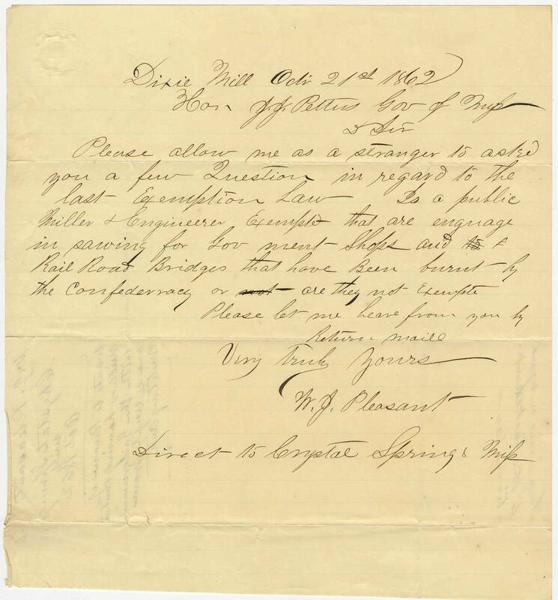 Dixie Mill Octr 21st 1862
Hon J. J. Pettus Gov of Miss
D Sir
Please allow me as a stranger to asked
you a few Question in regard to the
last Exemption Law Is a public
Miller & Engineer Exempted that are enguage
in sawing for Gov ment Shops and
Rail Road Bridges that have Been burnt by
the Confederracy or not are they not Exempte
Please let me heare from you by
Return maile
Very Truly Yours
W. J. Pleasant
Direct to Crystal Springs Miss